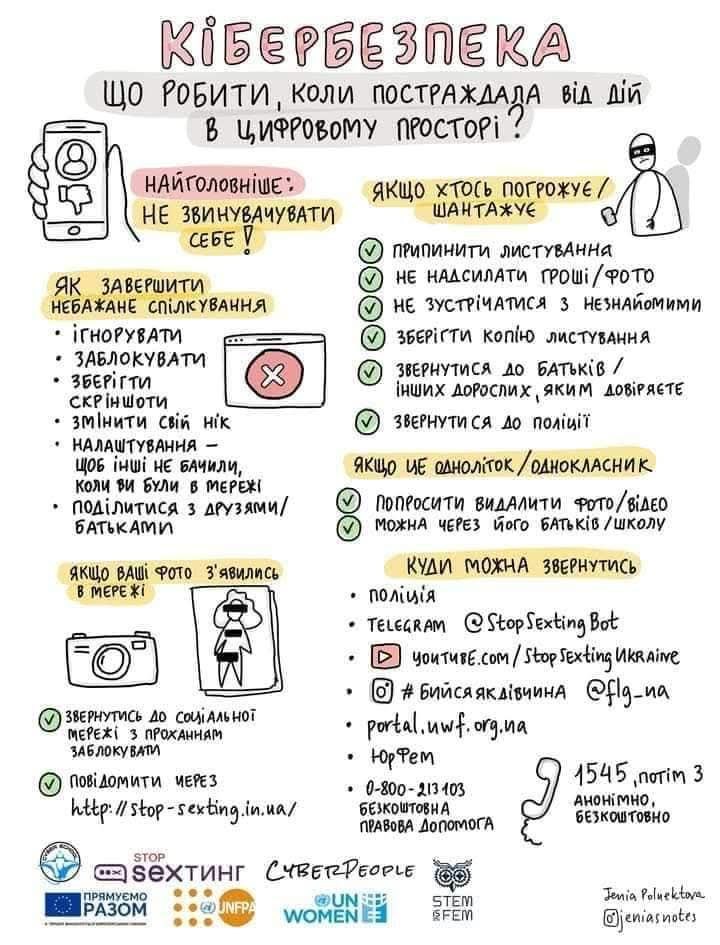 КІБЕРБЕЗПЕКА
ЩО РОБИТИ, КОЛИ ПОСТРАЖДАЛА ВІД ДІЙ
В ЦИФРОВОМУ ПРОСТОРІ?
НАЙГОЛОВНІШЕ:
НЕ ЗВИНУВАЧУВАТИ
СЕБЕ!
ЯК ЗАВЕРШИТИ
НЕБАЖАНЕ СПІЛКУВАННЯ
• ІГНОРУВАТИ
• ЗАБЛОКУВАТИ
• ЗБЕРІГТИ
СКРІНШОТИ
• ЗМІНИТИ СВІЙ НІК
• НАЛАШТУВАННЯ –
ЩОБ ІНШІ НЕ БАЧИЛИ,
КОЛИ ВИ БУЛИ В МЕРЕЖІ
• ПОДІЛИТИСЯ З ДРУЗЯМИ/
БАТЬКАМИ
ЯКЩО ВАШІ ФОТО З'ЯВИЛИСЬ
В МЕРЕЖІ
ЗВЕРНУТИСЬ ДО СОЦІАЛЬНОЇ
МЕРЕЖІ З ПРОХАННЯМ
ЗАБЛОКУВАТИ
ПОВІДОМИТИ ЧЕРЕЗ
http://stop-sexting.in.ua/
ЯКЩО ХТОСЬ ПОГРОЖУЄ/
ШАНТАЖУЄ
ПРИПИНИТИ ЛИСТУВАННЯ
НЕ НАДСИЛАТИ ГРОШІ/ФОТО
НЕ ЗУСТРІЧАТИСЯ З НЕЗНАЙОМИМИ
ЗБЕРІГТИ КОПІЮ ЛИСТУВАННЯ
ЗВЕРНУТИСЯ ДО БАТЬКІВ /
ІНШИХ ДОРОСЛИХ, ЯКИМ ДОВІРЯЄТЕ
ЗВЕРНУТИСЯ ДО ПОЛІЦІЇ
ЯКЩО ЦЕ ОДНОЛІТОК/ОДНОКЛАСНИК
ПОПРОСИТИ ВИДАЛИТИ ФОТО/ВІДЕО
МОЖНА ЧЕРЕЗ ЙОГО БАТЬКІВ/ШКОЛУ
КУДИ МОЖНА ЗВЕРНУТИСЬ
• ПОЛІЦІЯ
• TELEGRAM @StopSextingBot
• YOUTUBE.COM/StopSextingUKRAINE
• #БИЙСЯЯКДІВЧИНА @flg_ua
• portal.uwf.org.ua
• ЮрФем
• 0-800-213103
БЕЗКОШТОВНА
ПРАВОВА ДОПОМОГА
1545, ПОТІМ 3
АНОНІМНО,
БЕЗКОШТОВНО
STOP
SEXТИНГ
CYBERPEOPLE
STEM
IS FEM
ПРЯМУЄМО
РАЗОМ
UNFPA
UN
WOMEN
Jenia Poluektova
@jeniasnotes